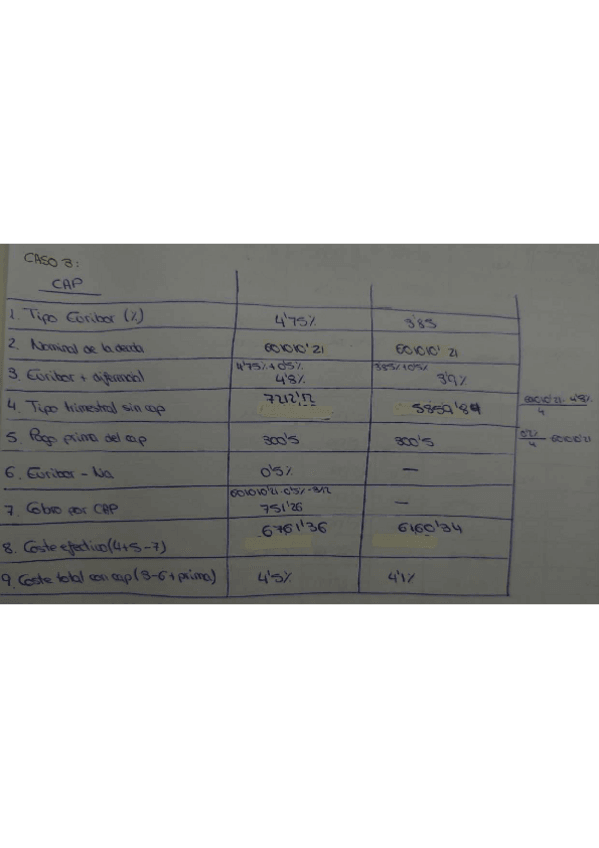 CASO 3:
CAP
1. Tipo Euribor (%) 4'75% 3'85
2. Nominal de la deuda 601010'21 601010'21
3. Euribor + diferencial 4'75%+0'5% 4'8% 3'85%+0'5% 3'9%
4. Tipo trimestral sin cap 7212'12 5859'84 601010'21 · 4'8% / 4
5. Pago prima del cap 300'5 300'5 0'2% / 4 601010'21
6. Euribor - Na 0'5% —
7. Cobro por CAP 601010'21·0'5%·3/12 751'26 —
8. Coste efectivo (4+5-7) 6761'36 6160'34
9. Coste total con cap (3-6+prima) 4'5% 4'1%